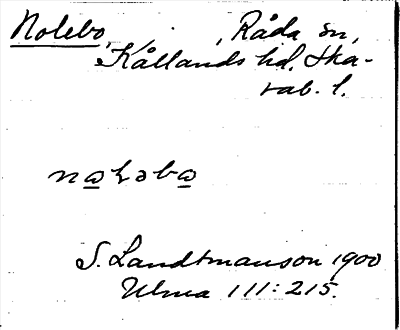 Nolebo, Råda sn,
Kållands hd. Ska-
rab. l.
noləbo
S. Landtmanson 1900
Ulma 111:215.